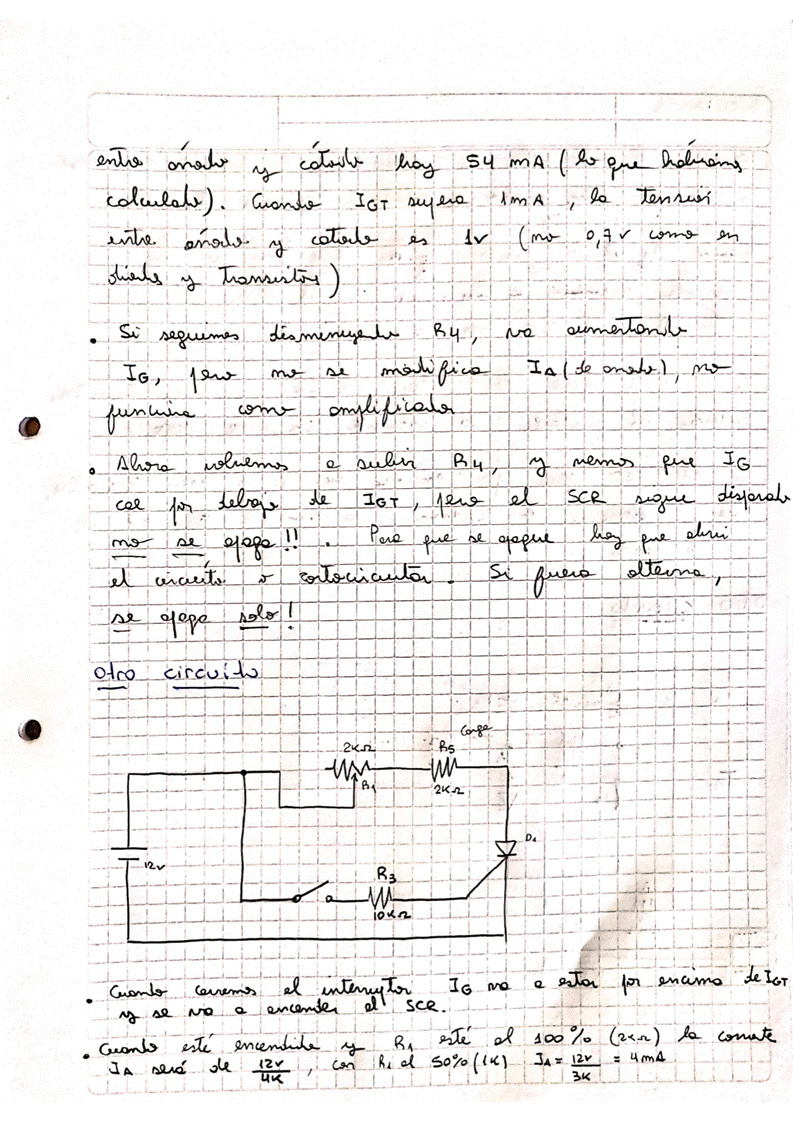 entre ánodo y cátodo hay 54 mA (lo que habíamos
calculado). Cuando IGT supera 1mA, la tensión
entre ánodo y catodo es 1v (no 0,7v como en
diodos y transistores)
• Si seguimos disminuyendo R4, va aumentando
IG, pero no se modifica IA (de anodo), no
funciona como amplificador
• Ahora volvemos a subir R4, y vemos que IG
cae por debajo de IGT, pero el SCR sigue disparado
no se apaga!!. Para que se apague hay que abrir
el circuito o cortocircuitar. Si fuera alterna,
se apaga solo!
Otro circuito
Carga
2KΩ
R5
R1
2KΩ
D1
12v
R3
10KΩ
• Cuando cerremos el interruptor IG va a estar por encima de IGT
y se va a encender el SCR.
• Cuando esté encendido y R1 esté al 100% (2KΩ) la corriente
IA será de 12v/4K, con R1 al 50% (1K) IA = 12v/3K = 4mA